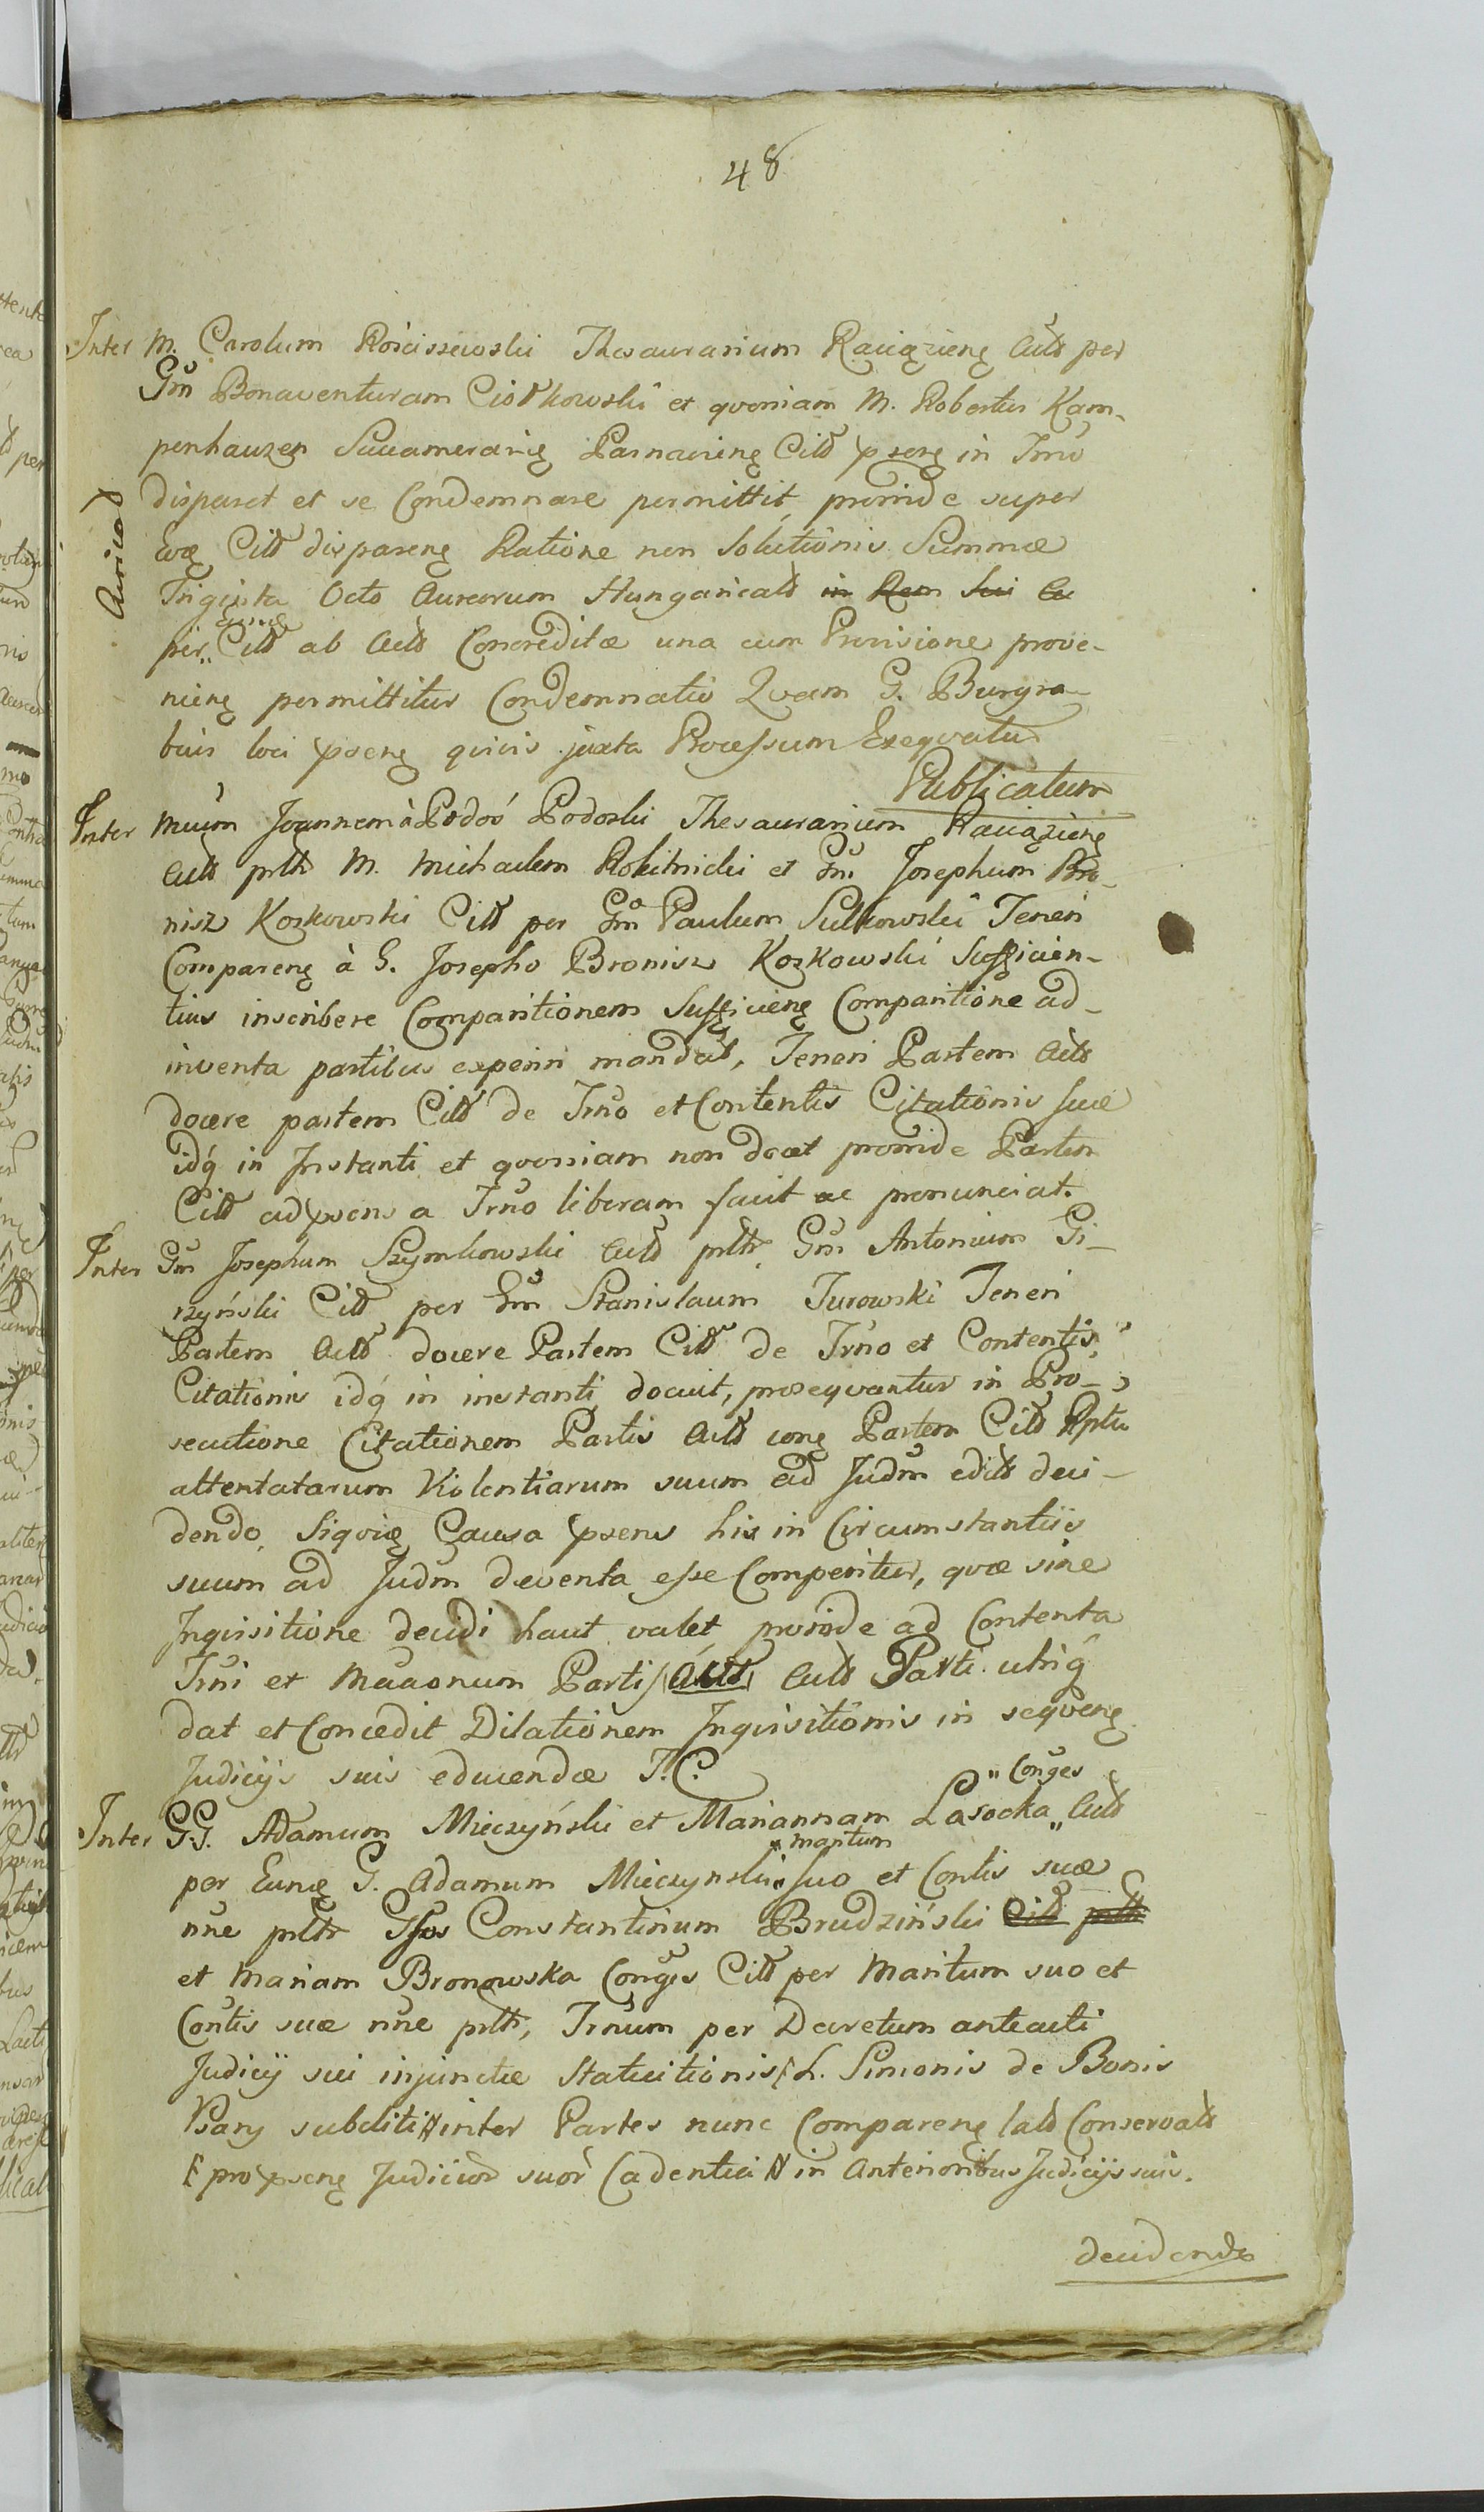 48
Inter M. Carolum Kościszewski Thesaurarium Raciązieng Actt per
Gm Bonaventuram Ciołkowski et qvoniam M. Robertus Kam-
penhauzen Succamerarig Parnavieng Citt pseng in Trno
disparet et se Condemnare permittit, proinde super
Evq Citt dispareng Ratione non Solutionis Summæ
Triginta Octo Aureorum Hungaricalt in Rem Sui Ac
per,, eund Citt ab Actt Concreditæ una cum Provisione prove-
nieng permittitur Condemnatio Qvam G. Burgra-
bius loci pseng qvivis juxta Processum Exeqvatur
Publicatum
Inter Mucum Joannem à Podoś Podoski Thesaurarium Raciązieng
Actt pltr M. Michaelem Rokitnicki et Gm Josephum Bro-
nisz Kozkowski Citt per Gm Paulum Sulkowski Teneri
Compareng à G. Josepho Bronisz Kozkowski Sufficien-
tius inscribere Comparitionem Sufficieng Comparitione ad-
inventa partibus experiri mandat, Teneri Partem Actt
docere partem Citt de Trno et Contentis Citationis suæ
idq in Instanti et qvoniam non docet proinde Partem
Citt ad psens a Trno liberam facit ac pronunciat.
Inter Gm Josephum Szymkowski Actt pltr Gm Antonium Gi-
rzyński Citt per Gm Stanislaum Turowski Teneri
Partem Actt docere Partem Citt de Trno et Contentis
Citationis idq in instanti docuit, proseqvantur in Pro-
secutione Citationem Partis Actt cong Partem Citt Rptu
attentatarum Violentiarum suum ad Judm edito deci-
dendo, Siqvię Causa psens his in Circumstantijs
suum ad Judm deventa esse Comperitur, qvæ sine
Inqvisitione decidi haut valet proinde ad Contenta
Trni et Partis Actt Actt Parti utriq
dat et Concedit Dilationem Inqvisitionis in seqveng
Judicijs suis educendæ T. C.
Inter G.G. Adamum Mieczyński et Mariannam Lasocka ,, Conges Actt
per Eunq G. Adamum Mieczynski ,, maritum suo et Contis suæ
nne pltr Gsos Constantinum Brudziński Citt pltr
et Mariam Bronowska Conges Citt per Maritum suo et
Contis suæ nne pltr, Trnum per Decretum anteacti
Judicij sui injunctæ Statuitionis L. Simonis de Bonis
Psary subditi inter Partes nunc Compareng latt Conservatt
pro pseng Judicior suor Cadentia in Anterioribus Judicijs suis.
decidendo